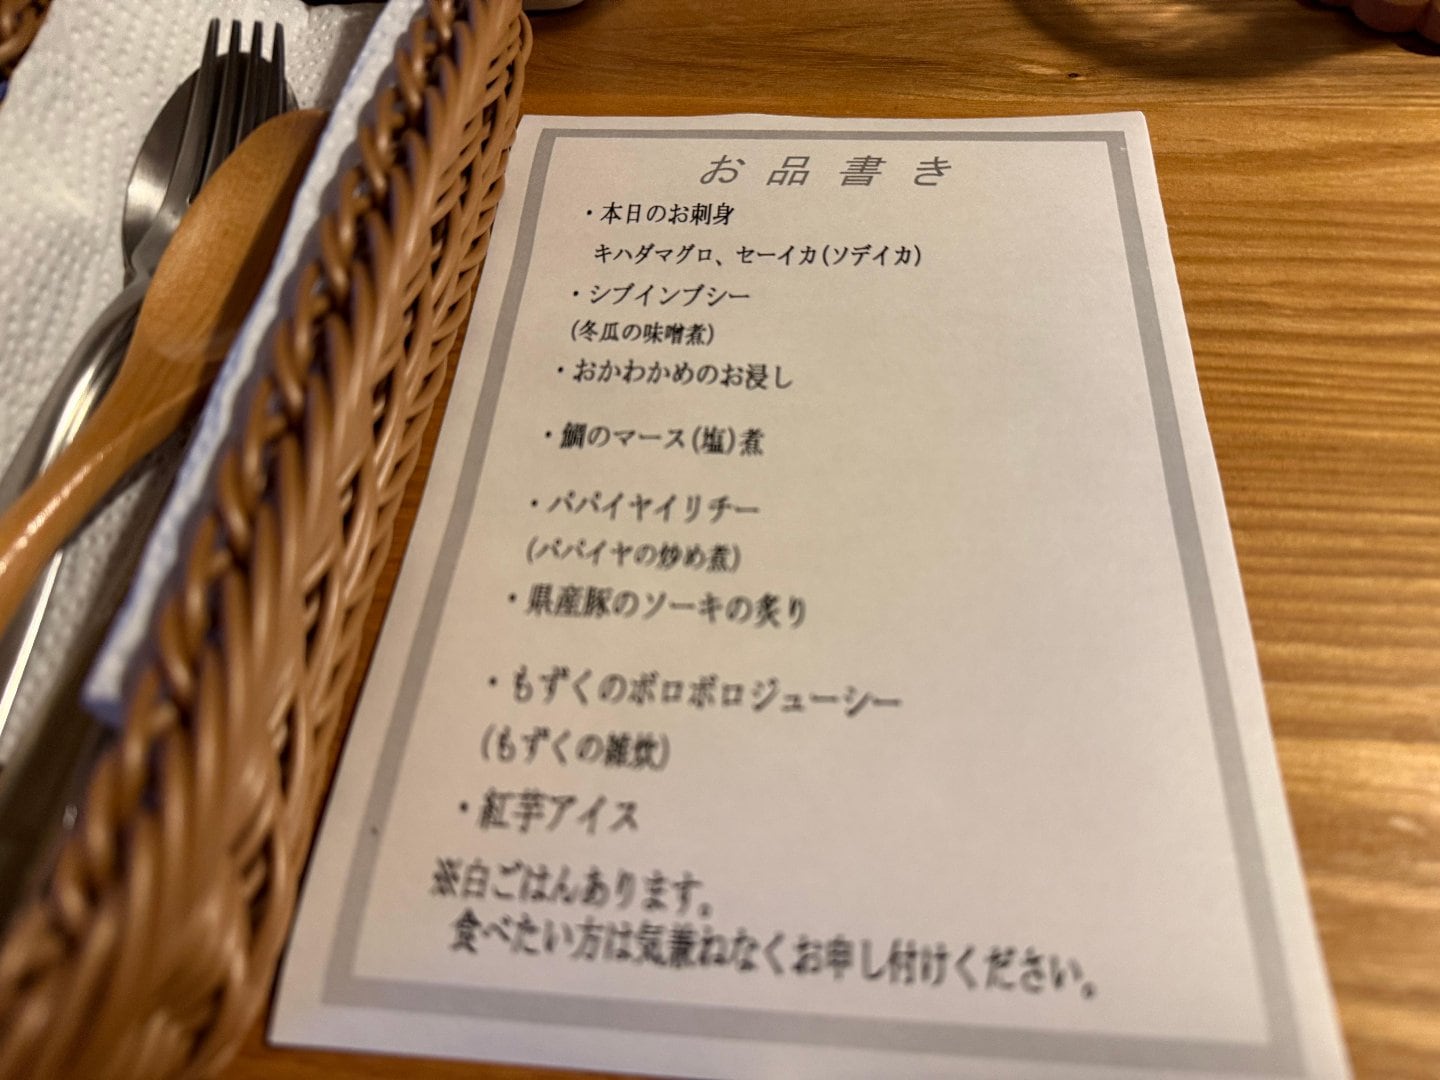 お品書き
・本日のお刺身
キハダマグロ、セーイカ(ソデイカ)
・シブインブシー
(冬瓜の味噌煮)
・おかわかめのお浸し
・鯛のマース(塩)煮
・パパイヤイリチー
(パパイヤの炒め煮)
・県産豚のソーキの炙り
・もずくのボロボロジューシー
(もずくの雑炊)
・紅芋アイス
※白ごはんあります。
食べたい方は気兼ねなくお申し付けください。